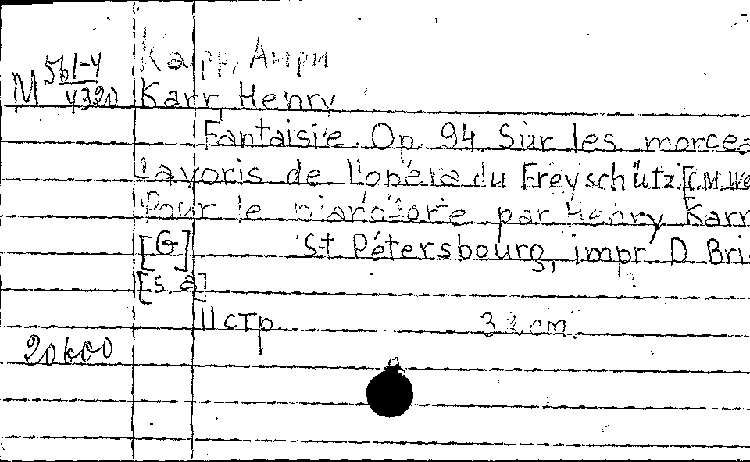 Карр, Анри
М 561-4/4320
Karr, Henry
Fantaisie. Op. 94 Sur les morcea
favoris de l'opéra du Freyschütz [C.M.We
Pour le pianoforte par Henry Karr
[G] St Pétersbourg, impr. D. Bri
[s. a]
11 стр. 32 cm.